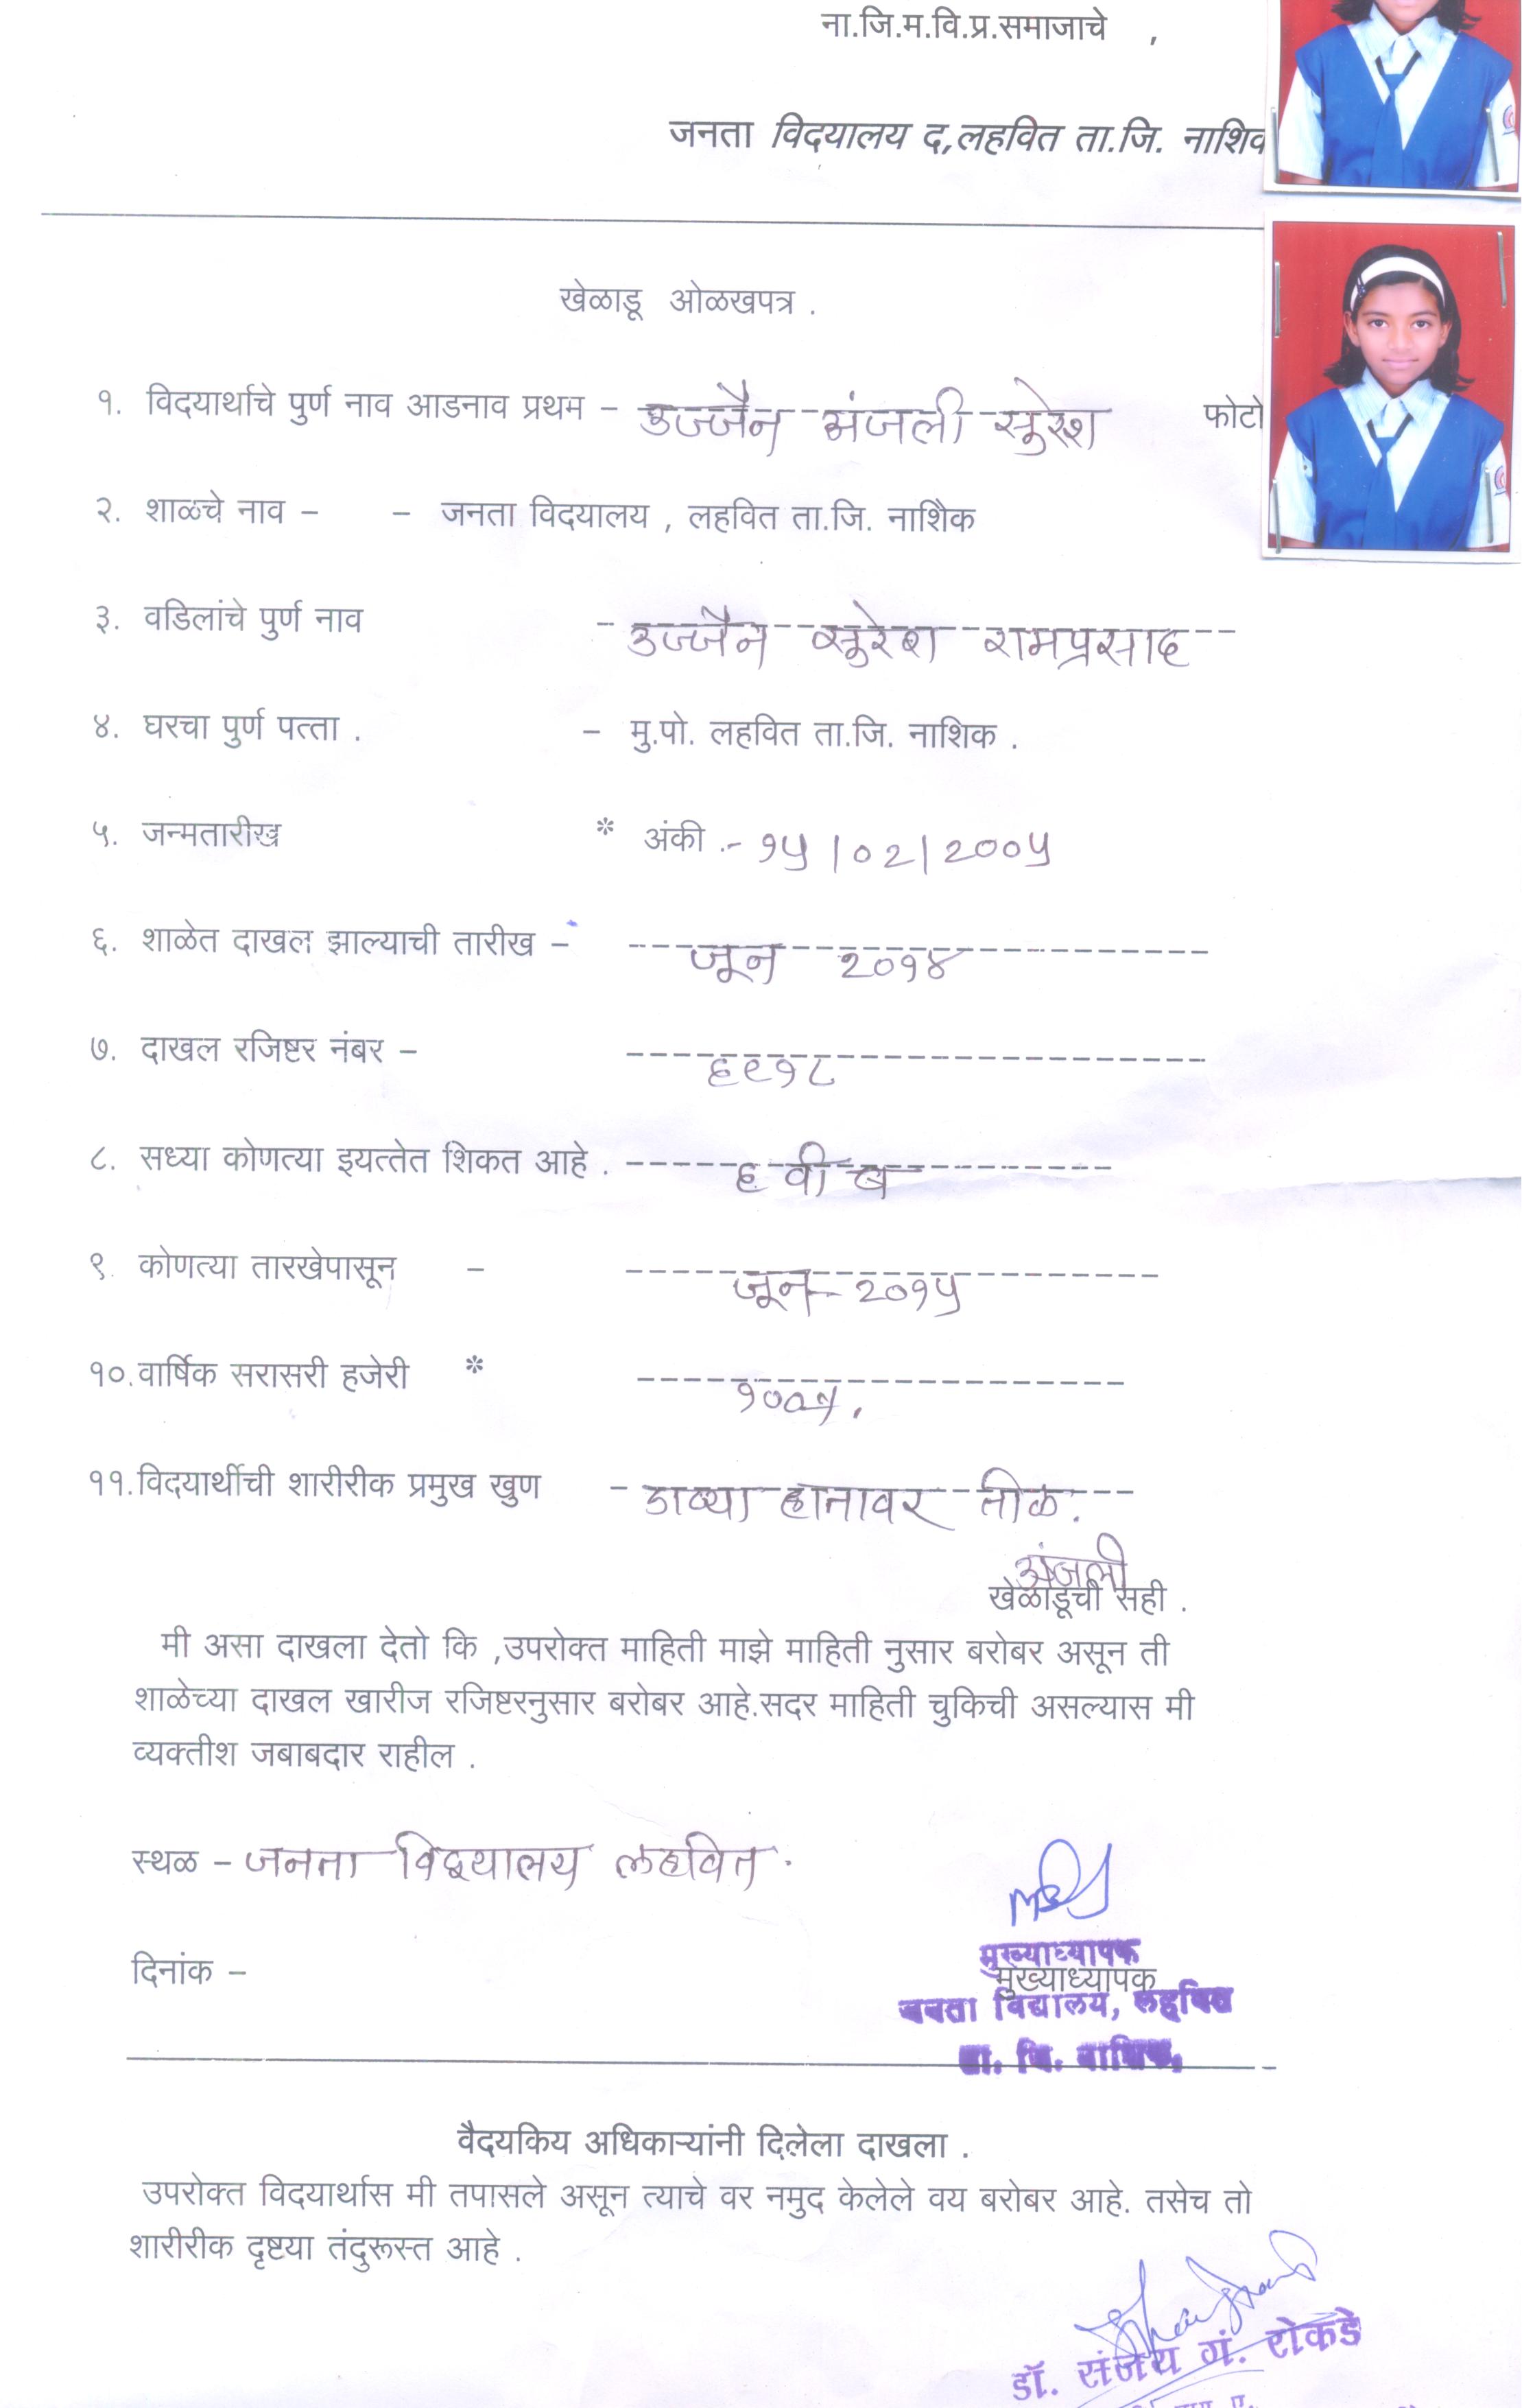 ना.जि.म.वि.प्र.समाजाचे ,
जनता विदयालय द,लहवित ता.जि. नाशिक
खेळाडू ओळखपत्र .
१. विदयार्थाचे पुर्ण नाव आडनाव प्रथम – उज्जैन अंजली सुरेश फोटो
२. शाळचे नाव – – जनता विदयालय , लहवित ता.जि. नाशिक
३. वडिलांचे पुर्ण नाव – उज्जैन सुरेश रामप्रसाद
४. घरचा पुर्ण पत्ता . – मु.पो. लहवित ता.जि. नाशिक .
५. जन्मतारीख * अंकी :- १५/०२/२००५
६. शाळेत दाखल झाल्याची तारीख – जून २०१४
७. दाखल रजिष्टर नंबर – ६९१८
८. सध्या कोणत्या इयत्तेत शिकत आहे . ६ वी ब
९. कोणत्या तारखेपासून – जून – २०१५
१०.वार्षिक सरासरी हजेरी * १००%.
११.विदयार्थीची शारीरीक प्रमुख खुण – डाव्या हातावर तीळ.
अंजली
खेळाडूची सही .
मी असा दाखला देतो कि ,उपरोक्त माहिती माझे माहिती नुसार बरोबर असून ती
शाळेच्या दाखल खारीज रजिष्टरनुसार बरोबर आहे.सदर माहिती चुकिची असल्यास मी
व्यक्तीश जबाबदार राहील .
स्थळ – जनता विद्यालय लहवित.
दिनांक –
मुख्याध्यापक
मुख्याध्यापक
जनता विद्यालय, लहवित
ता. जि. नाशिक.
वैदयकिय अधिकाऱ्यांनी दिलेला दाखला .
उपरोक्त विदयार्थास मी तपासले असून त्याचे वर नमुद केलेले वय बरोबर आहे. तसेच तो
शारीरीक दृष्टया तंदुरूस्त आहे .
डॉ. संजय गं. रोकडे